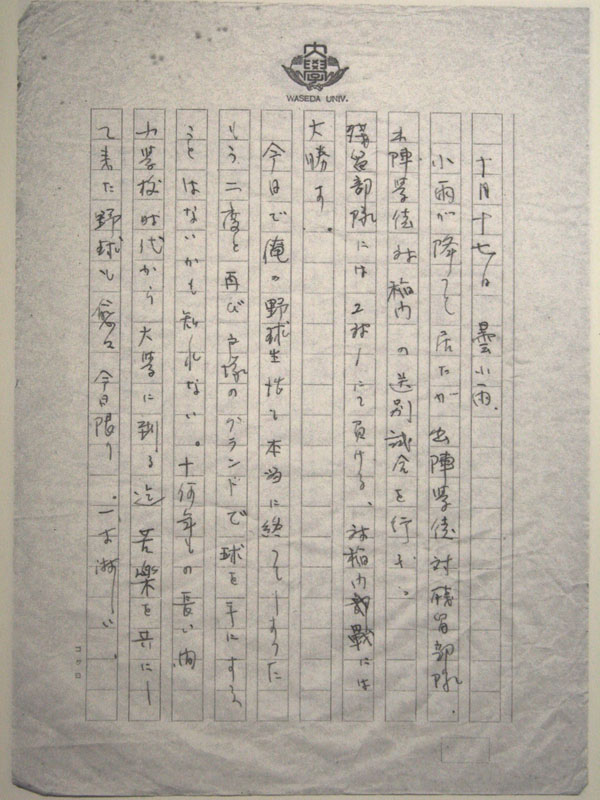 大學
WASEDA UNIV.
十月十七日 曇小雨.
小雨が降つて居たが 出陣学徒対残留部隊.
出陣学徒対稲門の送別試合を行ふ。
残留部隊には2対1にて負ける、対稲門戦には
大勝す.
今日で俺の野球生活も本当に終つてしまうた
もう二度と再び戸塚のグランドで球を手にする
ことはないかも知れない。十何年もの長い間
小学校時代から大学に到る迄 苦楽を共にし
て来た野球も愈々今日限り.一寸淋しい.
コクヨ